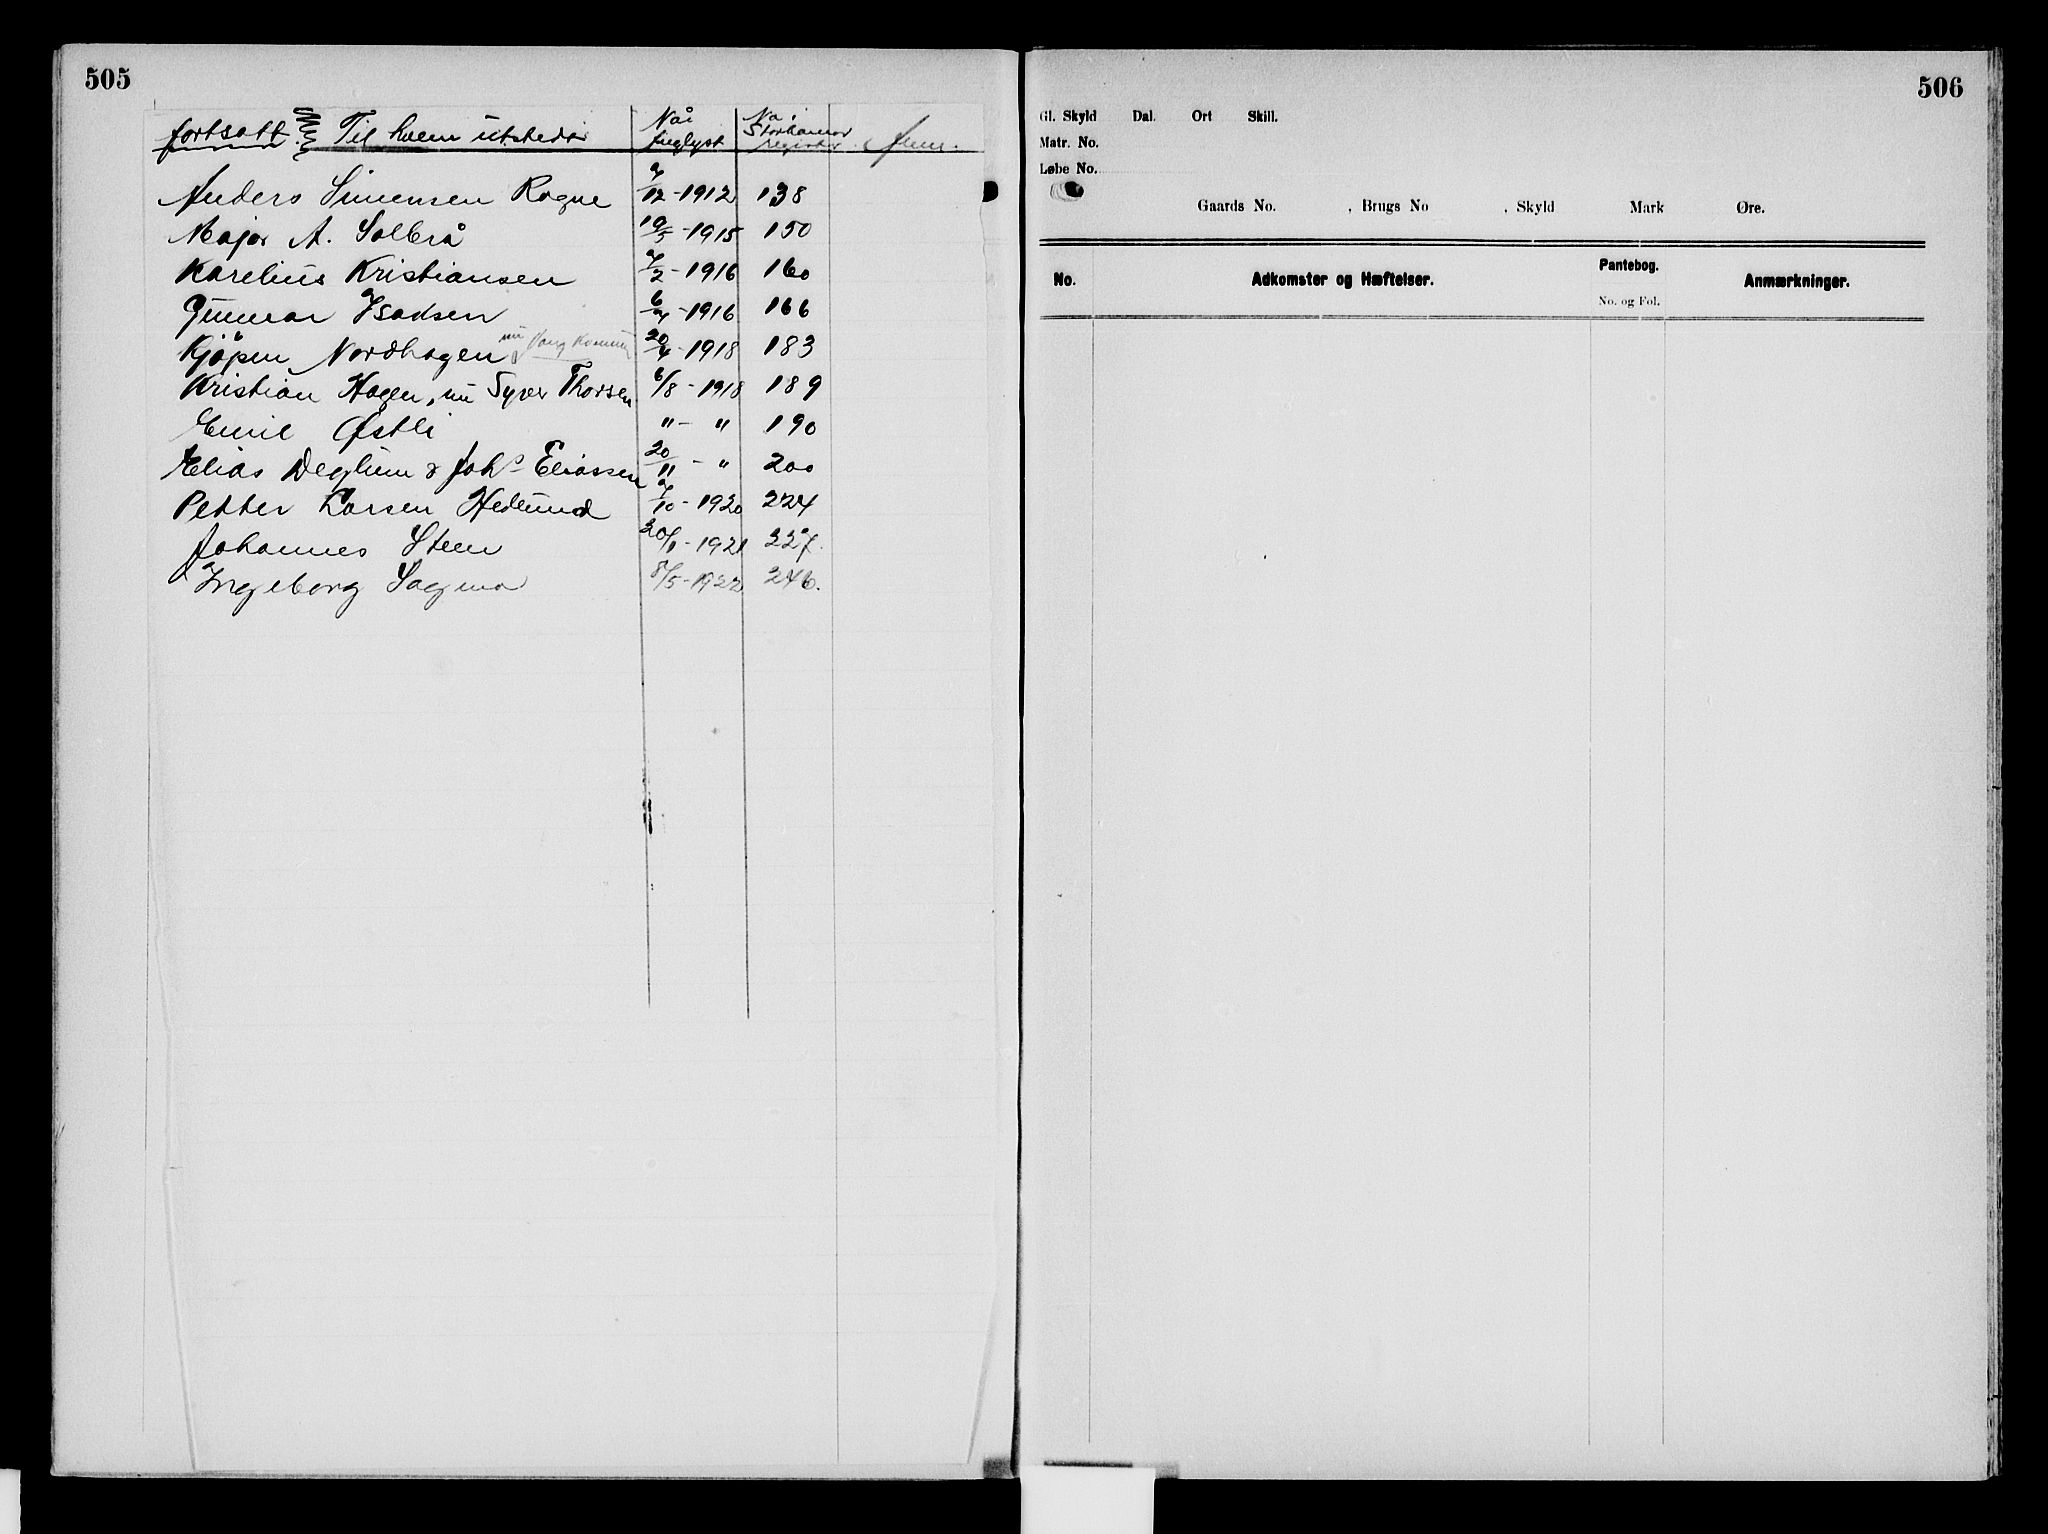 505
fortsatt. Til hvem utstedt Når tinglyst No. i Storhamar register Anm.
Anders Simensen Rogne 7/12-1912 138
Major A. Solbrå 19/5-1915 150
Karelius Kristiansen 7/2-1916 160
Gunnar Isaksen 6/4-1916 166
Kjöpm Nordhagen nu Vang Kommune 20/4-1918 183
Kristian Hagen, nu Syver Thorsen 6/8-1918 189
Emil Østli "-" 190
Elias Deglum & Johs Eliassen 20/11-" 200
Petter Larsen Hedlund 7/10-1920 224
Johannes Steen 20/1-1921 227.
Ingeborg Sagmo 8/5-1922 246.
506
Gl. Skyld Dal. Ort Skill.
Matr. No.
Løbe No.
Gaards No. , Brugs No , Skyld Mark Øre.
No. Adkomster og Hæftelser. Pantebog. Anmærkninger.
No. og Fol.